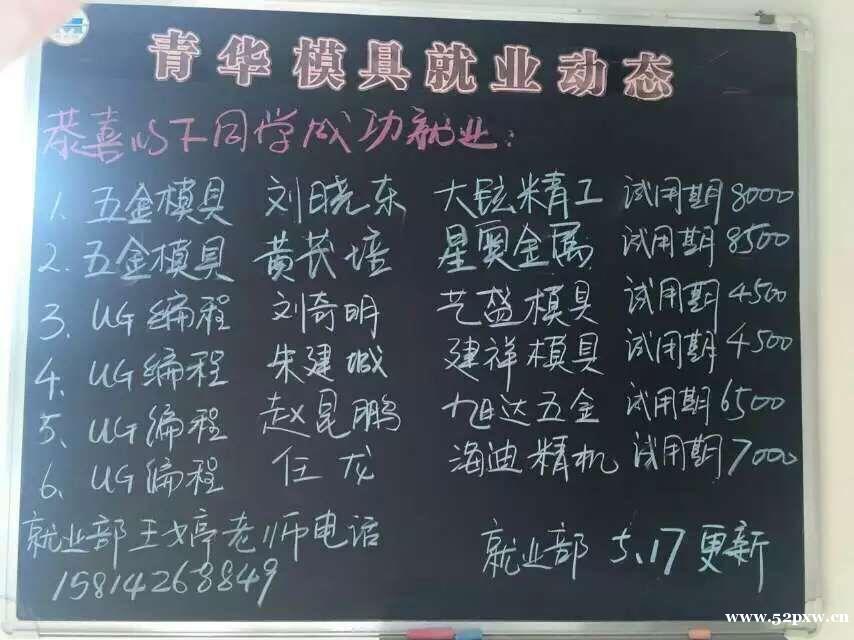 青华模具就业动态
恭喜以下同学成功就业:
1. 五金模具 刘晓东 大铉精工 试用期8000
2. 五金模具 黄芪培 星奥金属 试用期8500
3. UG编程 刘奇明 艺盛模具 试用期4500
4. UG编程 朱建城 建祥模具 试用期4500
5、UG编程 赵昆鹏 旭达五金 试用期6500
6、UG编程 任龙 海迪精机 试用期7000
就业部王婷老师电话 就业部 5.17更新
15814268849
www.52pxw.cn